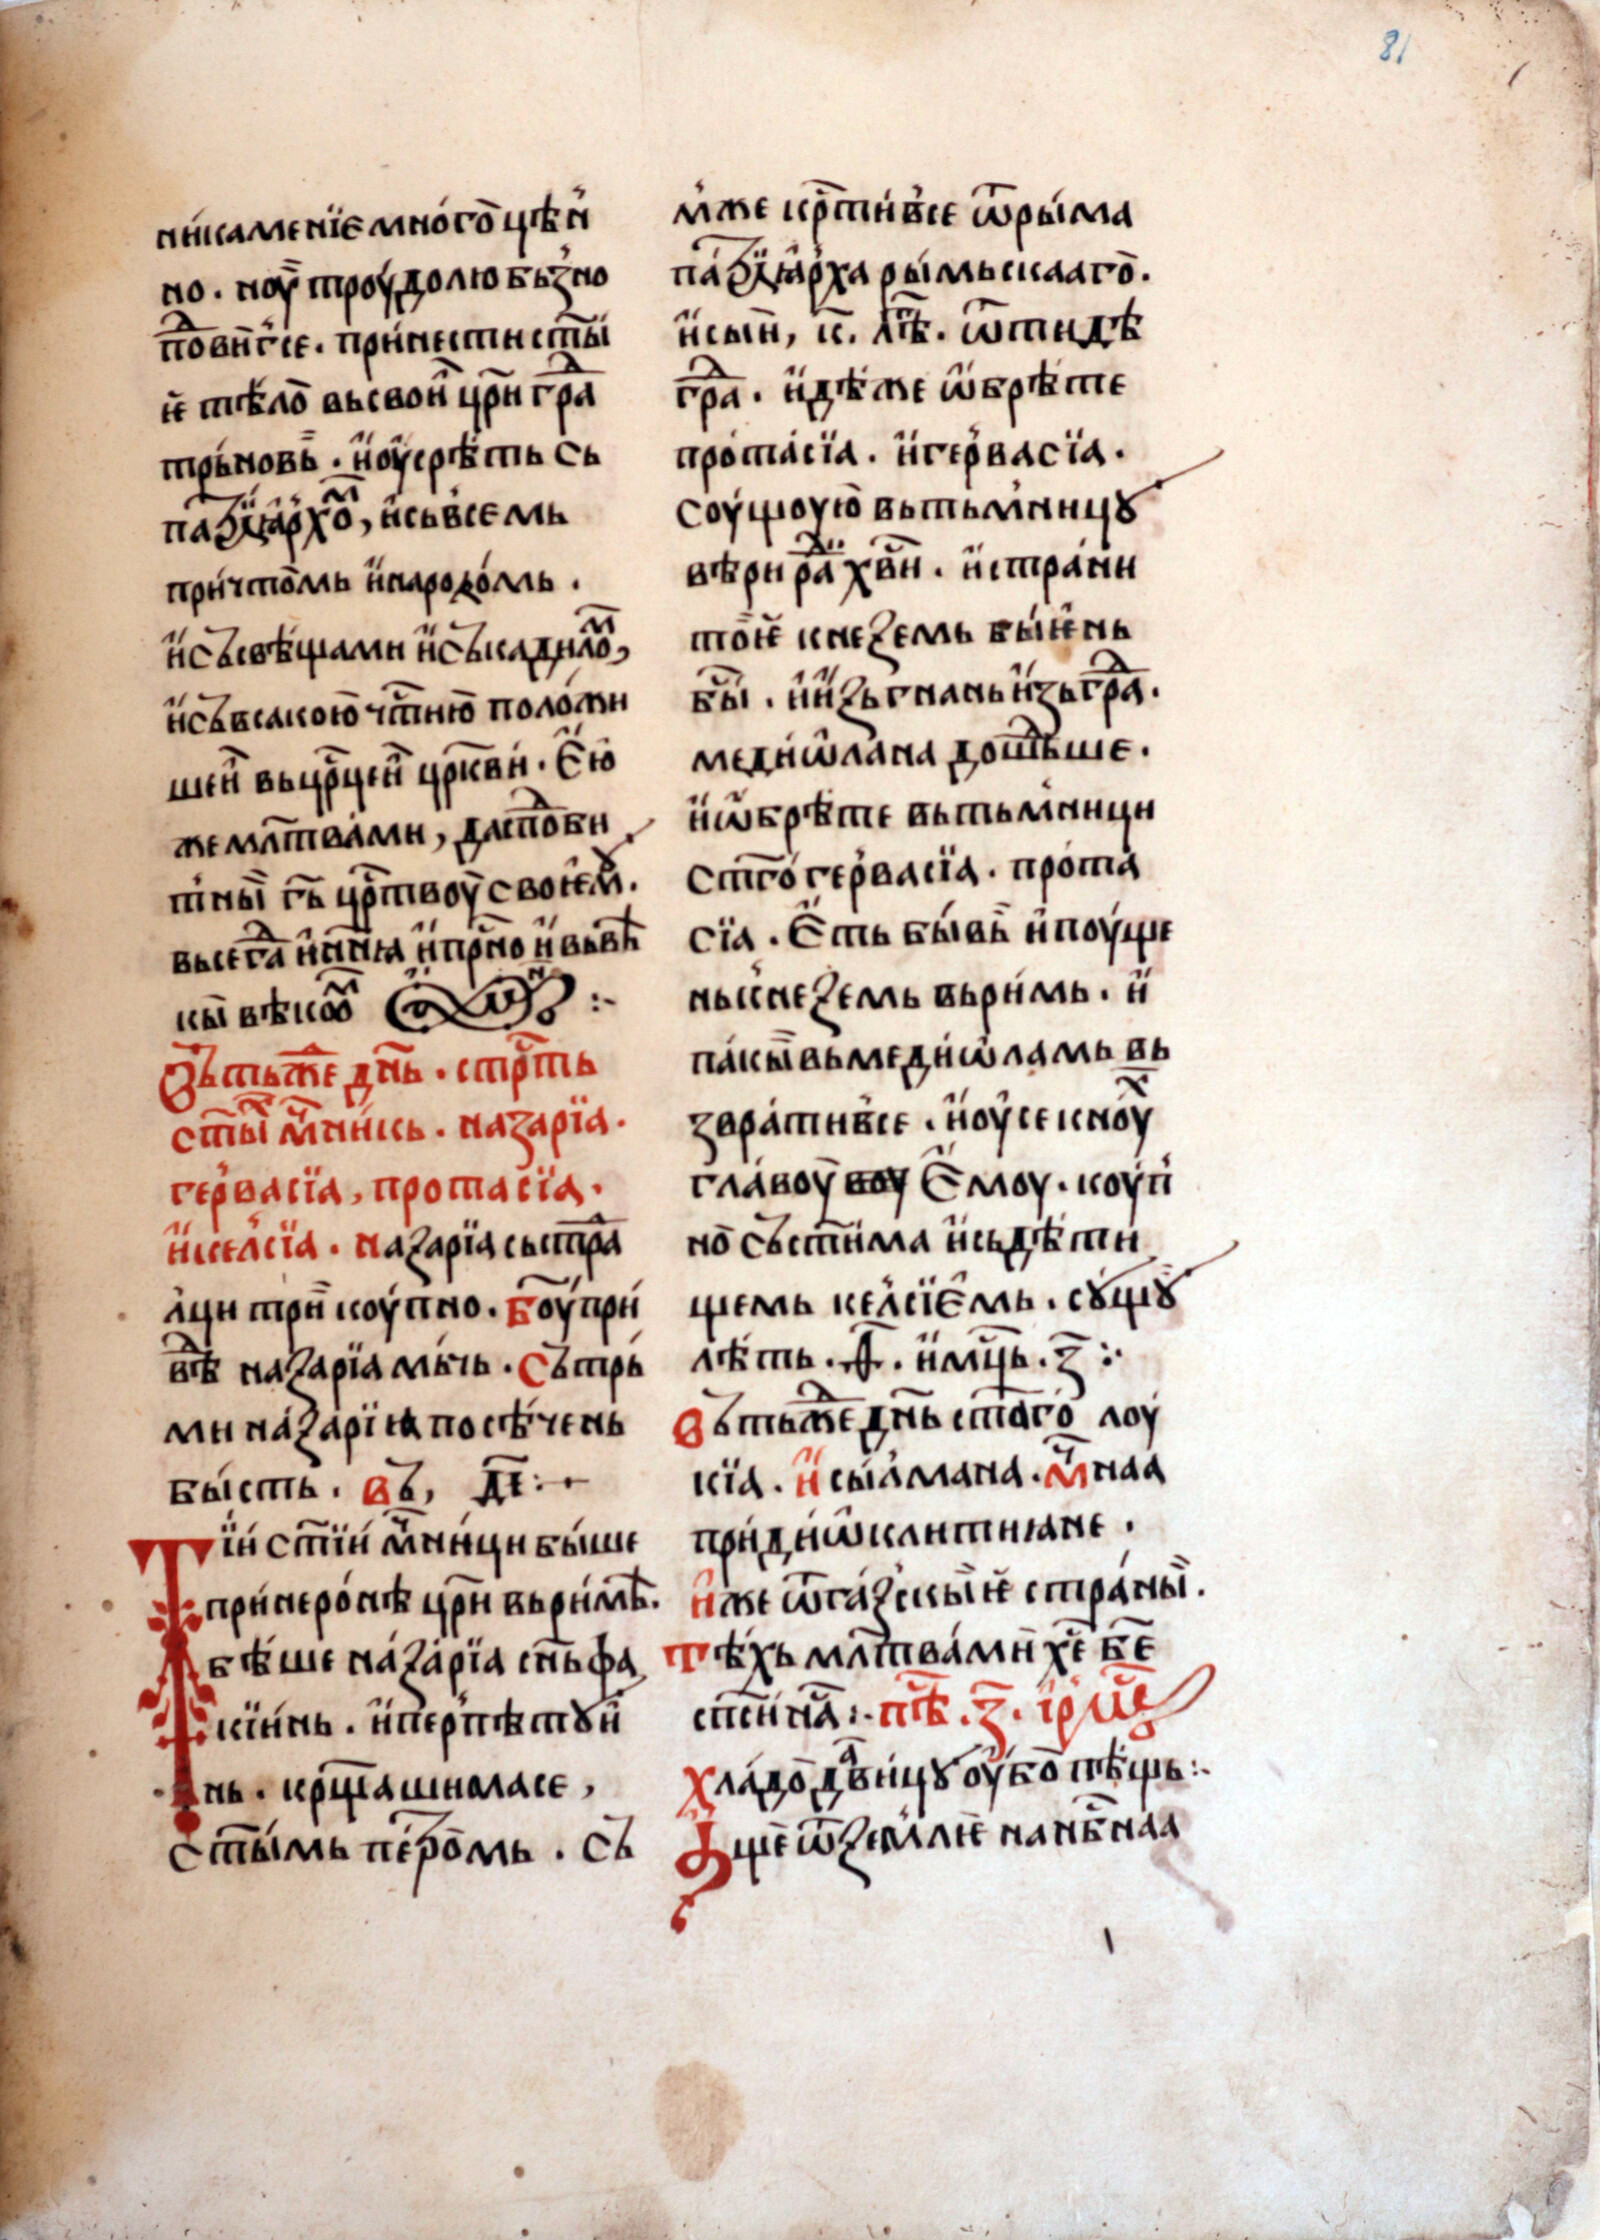 81
ни камениѥ многоцѣн
но . ноу троудолюбьзно
повигсе . принести ст҃ы
ѥ тѣло вь свои цр҃и гра
трьновь . и оусрѣть сь
патрїархо , и сь всемь
причтомь и народомь .
и съ свѣщами и съ кадило ,
и съ всакою чт҃ною положи
шеи вь цр҃цеи црк҃ви . Ѥю
же мл҃твами , да спⷣоби
т ны г҃ь црⷭ҇твоу своѥмꙋ .
вьсегда и нн҃ꙗ и прⷭ҇но и вь вѣ
кы вѣкѡⷨ :-
Въ тьжⷣе дн҃ь . стрⷭ҇ть
ст҃ыⷯ мч҃никь . назарїа .
гервасїа , протасїа .
и келсїа . назарїа сьстра
лци три коупно . Боу при
вⷣѣ назарїа мьчь . Съ трь
ми назарїꙗ посѣчень
бысть . Въ , д҃і :-
Тїи ст҃їи мч҃ници быше
при неронѣ цр҃и вь римѣ .
бѣше назарїа сн҃ь фа
кїинь . и перпѣтꙋи
нь . крщ҃ашноласе ,
ст҃ымь петромь . Съ
иже крⷭ҇тивсе ѿ рыма
патрїарха рымьскааго .
и сын , к҃ . лѣⷮ . ѿтиде
градⷣа . идѣже ѡбрѣте
протасїа . и гервасїа .
соущоую вь тьмницꙋ
вѣри радⷣи хв҃и . и страни
тоѥ кнеземь выѥнь
бы . и изьгнань изь граⷣ .
медиѡлана дошьⷣше .
и ѡбрѣте вь тьмници
ст҃го гервасїа . прота
сїа . Ѥть бывь и поуще
нь кнеземь вь римь . и
пакы вь медиѡламь вь
звративсе . и оусекноуⷯ
главоу воу Ѥмоу . коуп
но съ ст҃има и сь дѣти
щемь келсїѤмь . сꙋщꙋ
лѣть . а҃ . и мц҃ь . з҃ :·
Въ тьжⷣе дн҃ь ст҃аго лоу
кїа . и сылмана . мч҃наа
при диѡклитиꙗне .
иже ѿ газскыѥ страны .
Тѣхь мл҃твами хе б҃е
сп҃си наⷭ :· пⷭ҇ѣ . з҃ . їрмⷭ҇е
хладо двⷣицꙋ оубо пѣщь :-
Ѥще ѿ землиѥ на нб҃наа